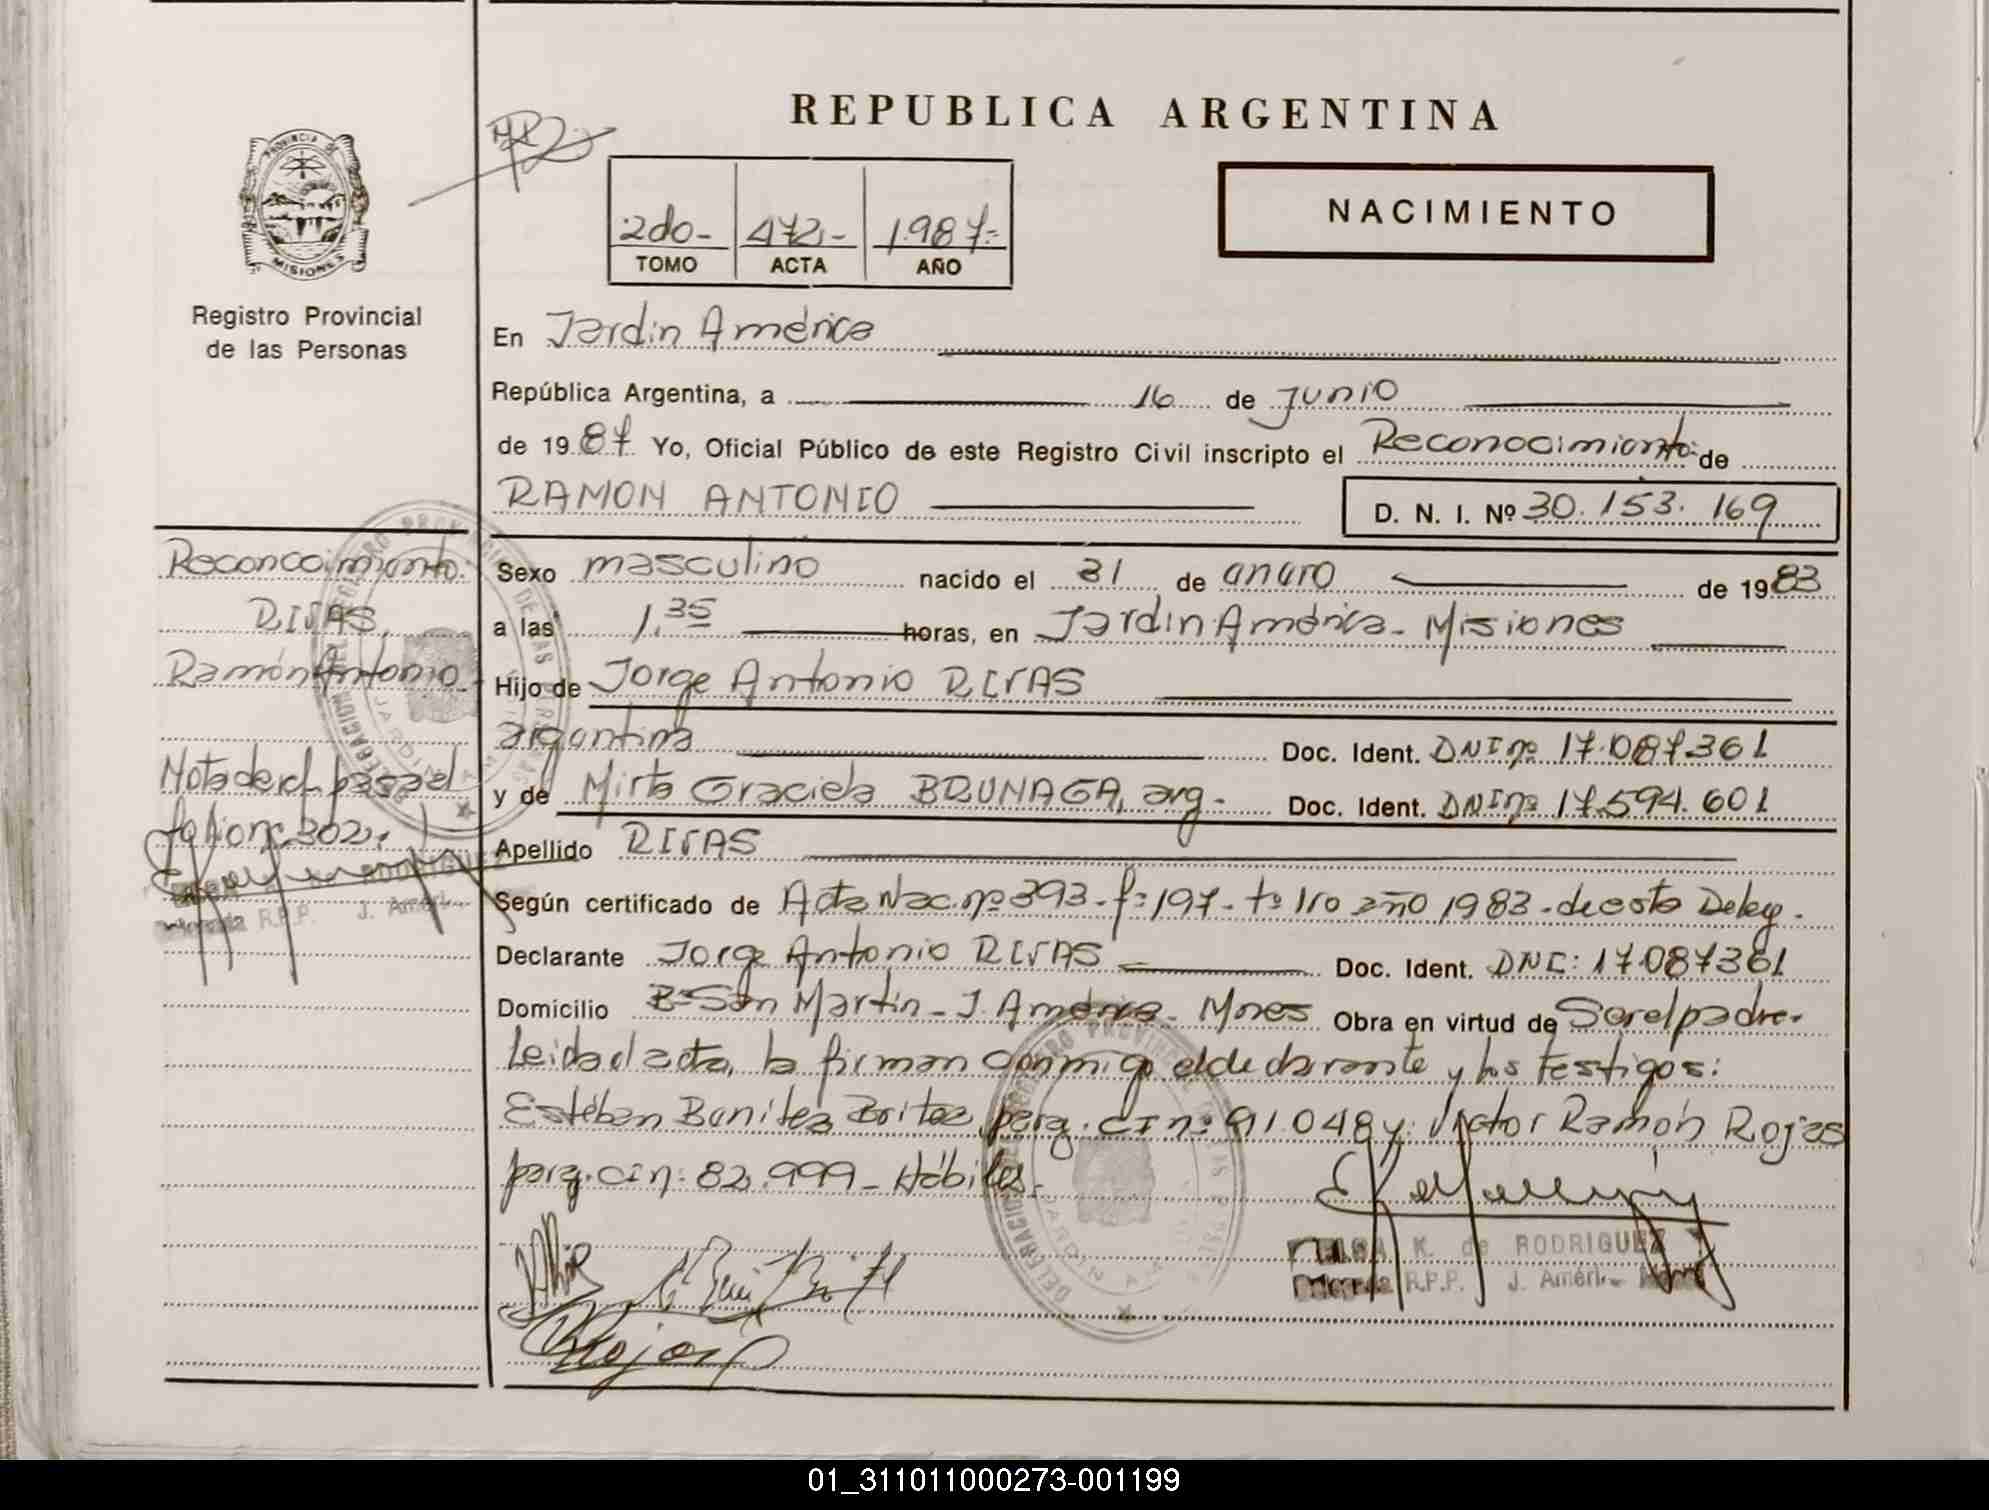 REPUBLICA ARGENTINA
PROVINCIA DE
MISIONES
Registro Provincial
de las Personas
2do- 472,- 1.987.-
TOMO ACTA AÑO
NACIMIENTO
En Jardin América
República Argentina, a 16 de junio
de 1987 Yo, Oficial Público de este Registro Civil inscripto el Reconocimiento de
RAMON ANTONIO D. N. I. Nº 30.153.169
Sexo masculino nacido el 31 de enero de 1983
a las 1,35 horas, en Jardin América - Misiones
Hijo de Jorge Antonio RIVAS
argentina Doc. Ident. DNI nº 17.087.361
y de Mirta Graciela BRUNAGA, arg. Doc. Ident. DNI nº 17.594.601
Apellido RIVAS
Según certificado de Acta Nac. nº 393 - fº 197 - tº 1ro año 1983 - de esta Deleg.
Declarante Jorge Antonio RIVAS Doc. Ident. DNI: 17.087.361
Domicilio Bº San Martin - J. América - Mnes Obra en virtud de Ser el padre.
Leida el acta, la firman conmigo el declarante y los testigos:
Esteban Benitez Britez, parag. CI nº 91.048 y: Victor Ramón Rojas
parag. CI nº: 82.999 - Hábiles.
K. de RODRIGUEZ
R.P.P. J. Améri
Reconocimiento
RIVAS,
Ramón Antonio
Nota de rect. pasa al
folio nº 302.
RODRIGUEZ
R.P.P. J. Améri
01_311011000273-001199